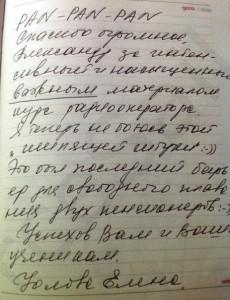 PAN-PAN-PAN
Спасибо огромное
Александру за интен-
сивный и насыщенный
важным материалом
курс радиооператора.
Я теперь не боюсь этой
"шипящей штуки":-))
Это был последний барь-
ер для свободного плава-
ния двух пенсионеров:-)
Успехов Вам и Вашим
ученикам.
Елена.